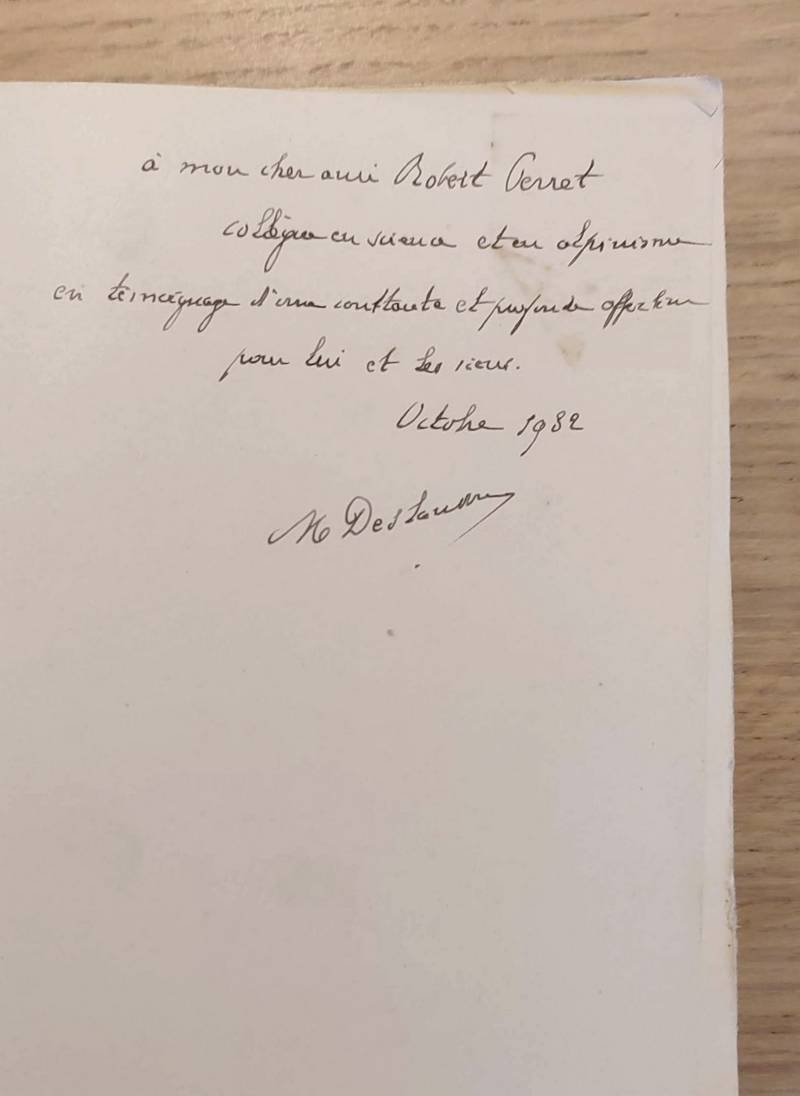 à mon cher ami Robert Perret
collègue en science et en alpinisme
en témoignage d'une constante et profonde affection
pour lui et les siens.
Octobre 1932